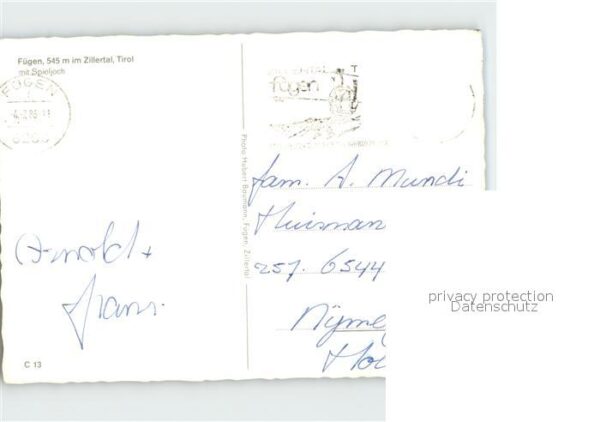 Fügen, 545 m im Zillertal, Tirol
mit Spieljoch
FÜGEN
Fügen
Photo Hubert Baumann, Fügen, Zillertal
fam. A. Mundi
Huisman
257. 6544
Nijme
Ho
Arnold +
frans.
C 13
privacy protection
Datenschutz